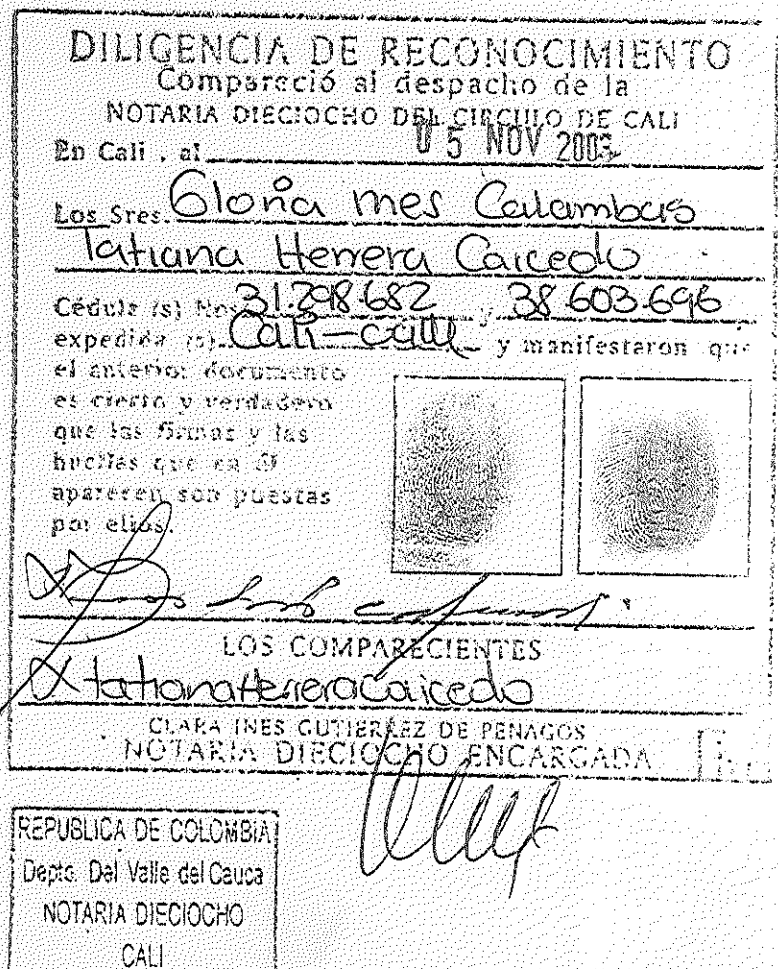 DILIGENCIA DE RECONOCIMIENTO
Compareció al despacho de la
NOTARIA DIECIOCHO DEL CIRCULO DE CALI
En Cali , al 05 NOV 2003
Los Sres. Gloria Ines Calambas
Tatiana Herrera Caicedo
Cédula (s) Nos 31.298.682 y 38.603.696
expedida (s) Cali - Cali y manifestaron que
el anterior documento
es cierto y verdadero
que las firmas y las
huellas que en él
aparecen son puestas
por ellos.
LOS COMPARECIENTES
Tatiana Herrera Caicedo
CLARA INES GUTIERREZ DE PENAGOS
NOTARIA DIECIOCHO ENCARGADA
REPUBLICA DE COLOMBIA
Depto. Del Valle del Cauca
NOTARIA DIECIOCHO
CALI